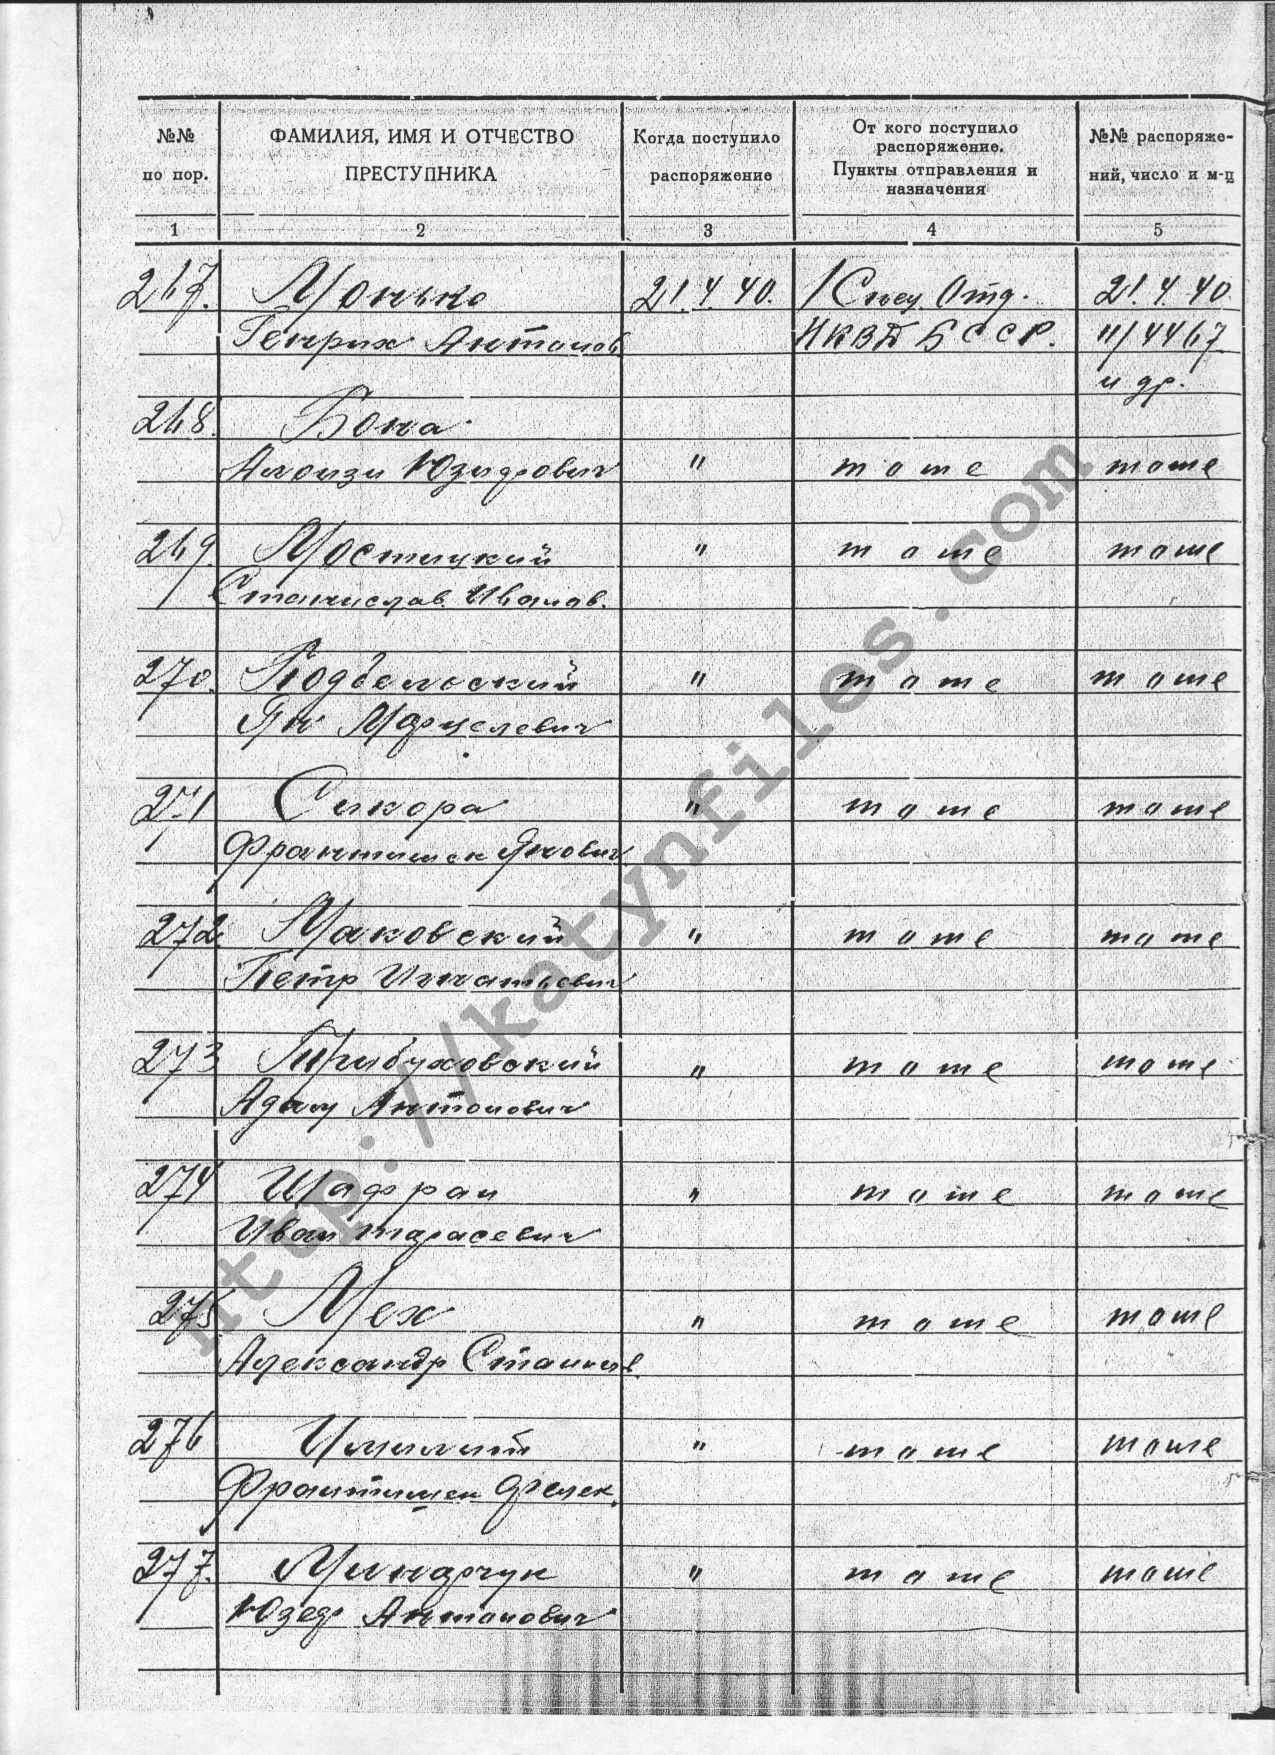 №№ по пор.
ФАМИЛИЯ, ИМЯ И ОТЧЕСТВО ПРЕСТУПНИКА
Когда поступило распоряжение
От кого поступило распоряжение. Пункты отправления и назначения
№№ распоряже-ний, число и м-ц
1 2 3 4 5
267. Монько 21.4.40. 1 Спец. Отд. 21.4.40
Генрих Антонов. НКВД БССР. 11/4467
и др.
268. Бона
Алоизи Юзефович " тоже тоже
269. Мостицкий " тоже тоже
Станислав. Иванов.
270. Подбельский " тоже тоже
Ян Марцелевич
271 Сикора " тоже тоже
Франтишек Янович
272. Маковский " тоже тоже
Петр Игнатьевич
273 Пшибуховский " тоже тоже
Адам Антонович
274 Шафран " тоже тоже
Иван Тарасевич
275 Мех " тоже тоже
Александр Станисл.
276 " тоже тоже
Франтишек Фелек.
277. Миндрчук " тоже тоже
Юзеф Антонович
http://katynfiles.com